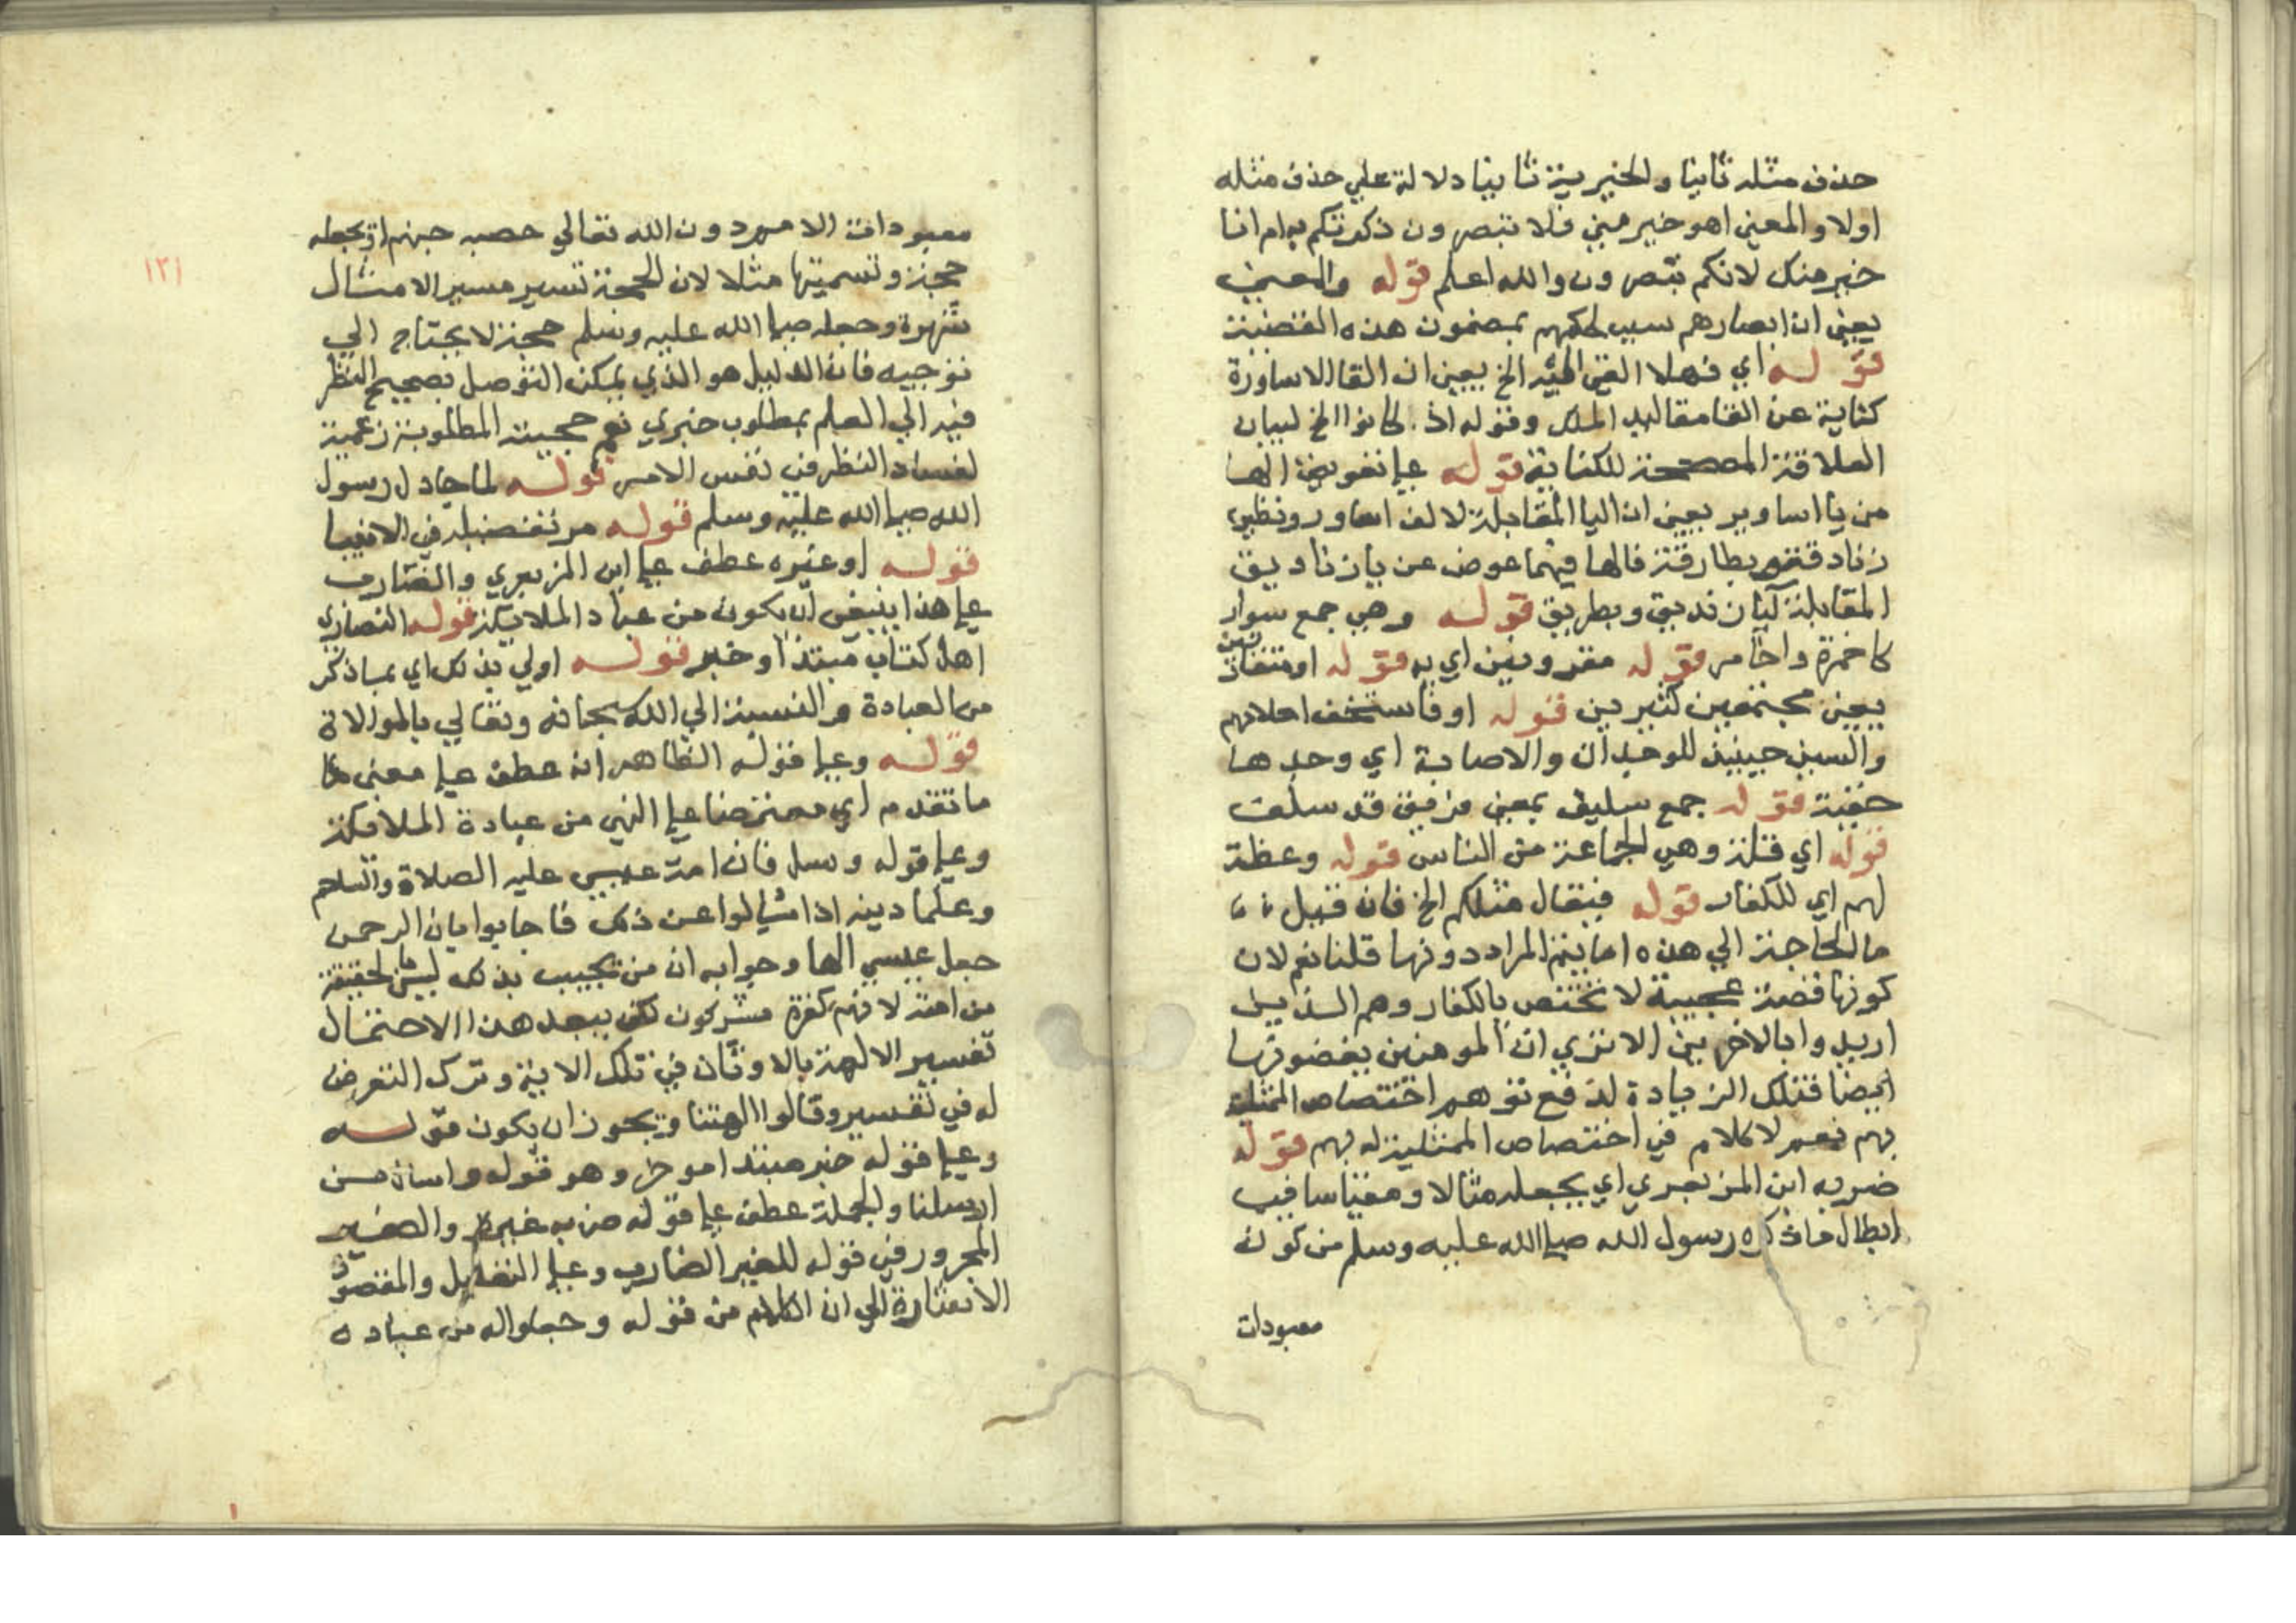 حذف مثله ثانيا والخيرية ثانيا دلالة علي حذف مثله
اولا والمعني اهو خير مني فلا تبصرون ذكرتكم به ام انا
خير منه لانكم تبصرون والله اعلم قوله والمعني
يعني ان ابصارهم سبب لحكمهم بمضمون هذه القضية
قوله اي فهلا القي اليه الخ يعني ان القا الاساورة
كناية عن القا مقاليد الملك وقوله اذ كانوا الخ لبيان
العلاقة المصححة للكناية قوله علي تعويض الها
من يا اساوير يعني ان اليا المقابلة لالف اسوار ونظيره
زنادقة وبطارقة فالها فيهما عوض عن يا زناديق
المقابلة لياء زنديق وبطريق قوله وهي جمع سوار
كاخمرة واخامر قوله مقرونين اي به قوله او متقارنين
يعني مجتمعين كثيرين قوله او فاستخف احلامهم
والسين حينيذ للوجدان والاصابة اي وجدها
خفيفة قوله جمع سليف بمعني فريق قد سلف
قوله اي ثلة وهي الجماعة من الناس قوله وعظة
لهم اي للكفار قوله فيقال مثلكم الخ فان قيل
ما الحاجة الي هذه اما يتم المراد دونها قلنا نعم لان
كونها قصة عجيبة لا تختص بالكفار وهم الذين
اريدوا بالاخرين الا تري ان المومنين يقصونها
ايضا فتلك الزيادة لدفع توهم اختصاص المثلية
بهم نعم لا كلام في اختصاص الممثلية له بهم قوله
ضربه ابن الزبعري اي يجعله مثالا ومقياسا في
ابطال ما ذكره رسول الله صلي الله عليه وسلم من كون
معبودات
١٢١
معبودات الامم دون الله تعالي حصب جهنم او يجعله
حجة وتسميتها مثلا لان الحجة تسير مسير الامثال
شهرة وجعله صلي الله عليه وسلم حجة لا يحتاج الي
توجيه فان الدليل هو الذي يمكن التوصل بصحيح النظر
فيه الي العلم بمطلوب خبري نعم حجيته المطلوبة زعمية
لفساد النظر في نفس الامر قوله لما جادل رسول
الله صلي الله عليه وسلم قوله مر تفصيله في الانبيا
قوله او غيره عطف علي ابن الزبعري والضارب
علي هذا ينبغي ان يكون من عباد الملائكة قوله النصاري
اهل كتاب مبتدا وخبر قوله اولي بذلك اي بما ذكر
من العبادة والنسبة الي الله سبحانه وتعالي بالموالاة
قوله وعلي قوله الظاهر انه عطف علي معني
ما تقدم اي معترضا علي النهي من عبادة الملائكة
وعلي قوله وسل فان امة عيسي عليه الصلاة والسلام
وعلما دينه اذا سالوا عن ذلك فاجابوا بان الرحمن
جعل عيسي الها وجوابه ان من يجيب بذلك ليس لحقيقة
من امته لانهم كفرة مشركون لكن يبعد هذا الاحتمال
تفسير الالهة بالاوثان في تلك الاية وترك التعرض
له في تفسير وقالوا الهتنا ويجوز ان يكون قوله
وعلي قوله خبر مبتدا موخر وهو قوله واسال من
ارسلنا والجملة عطف علي قوله ضربه غيره والضمير
المجرور في قوله للغير الضارب وعلي التقديرين والمقصود
الاشارة الي ان الكلام من قوله وجعلوا له من عباده